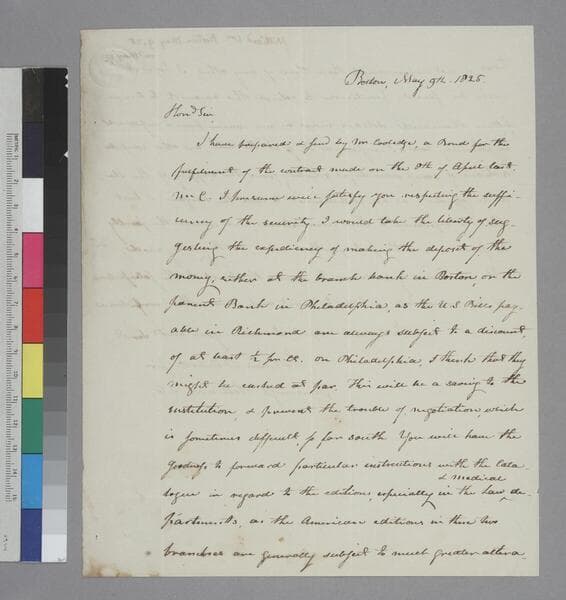 Boston, May 9th. 1825
Hond Sir
I have prepared & send by Mr Coolidge, a Bond for the
fulfilment of the contract made on the 8th of April last.
Mr C. I presume will satisfy you respecting the suffi-
ciency of the security. I would take the liberty of sug-
gesting the expediency of making the deposit of the
money, either at the branch bank in Boston, or the
parent Bank in Philadelphia, as the U.S Bills pay-
able in Richmond are always subject to a discount,
of at least ½ pr ct. on Philadelphia, I think that they
might be cashed at par. This will be a saving to the
institution, & prevent the trouble of negotiation, which
is sometimes difficult so far south You will have the
goodness to forward particular instructions with the Cata
logue in regard to the editions, especially in the Law, & Medical de-
partments, as the American editions in these two
branches are generally subject to much greater altera-